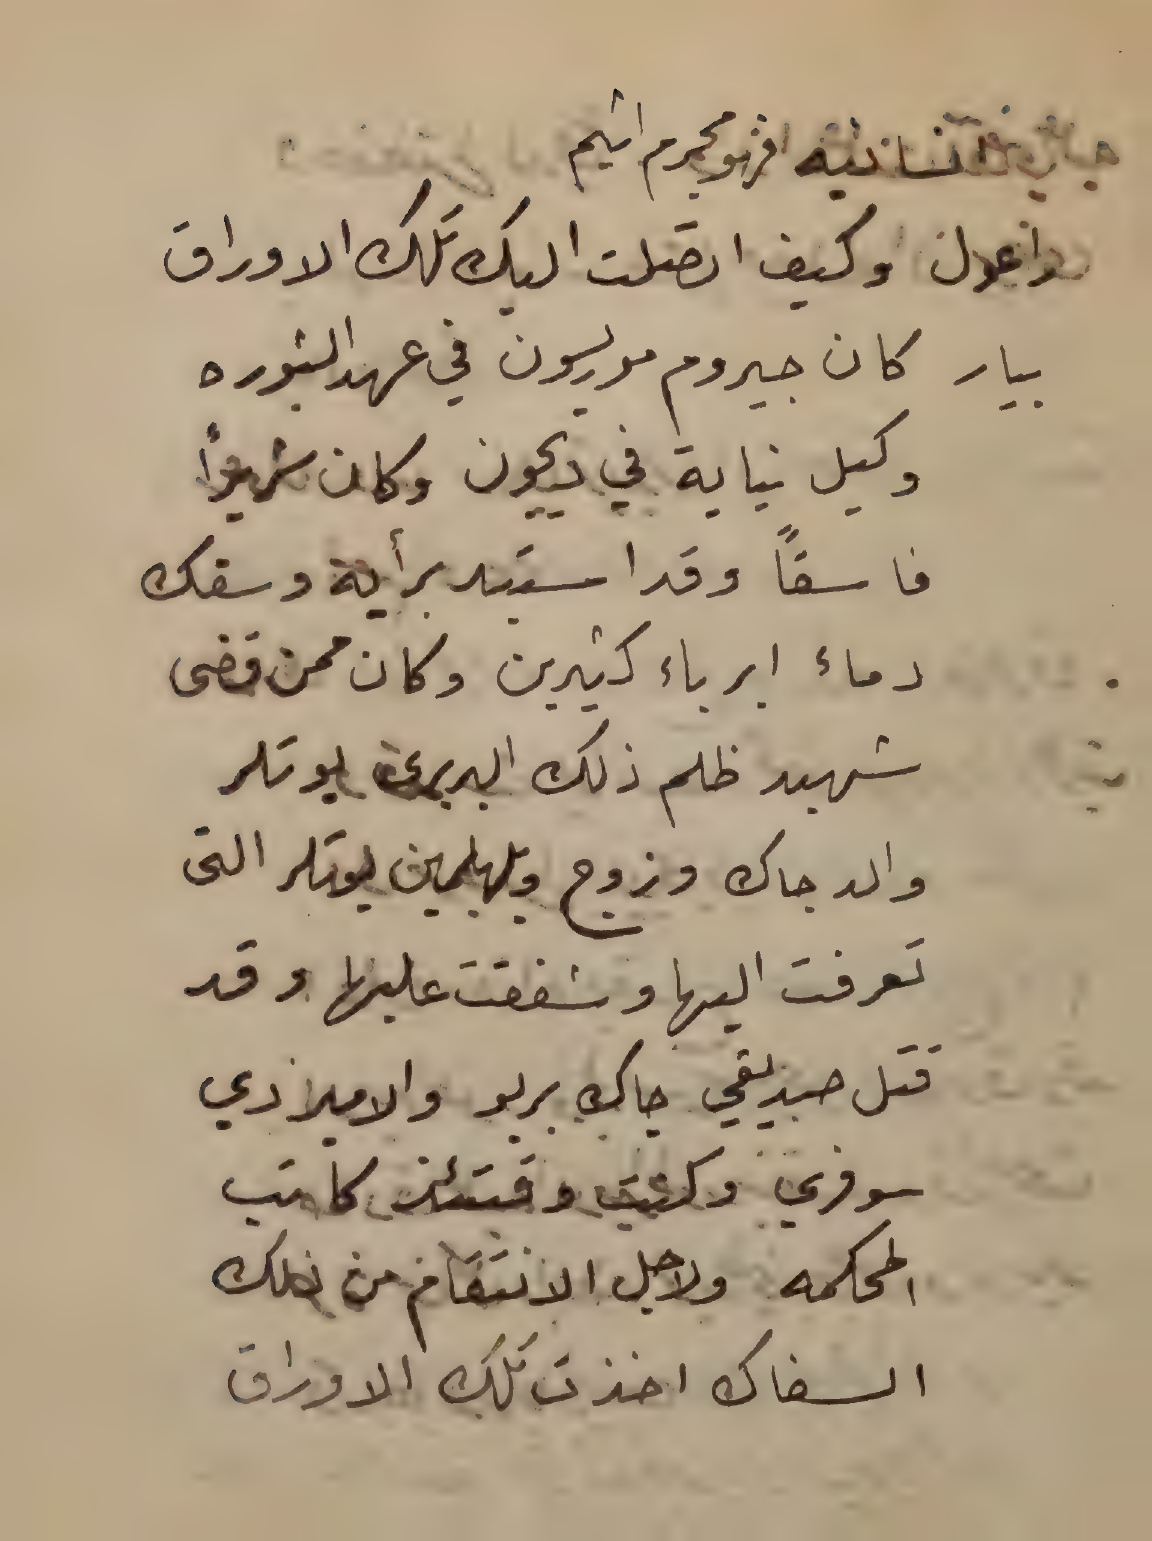 انسانية افهو مجرم اثيم
راغول وكيف اتصلت اليك تلك الاوراق
بيار كان جيروم موريسون في عهد الثوره
وكيل نيابة في ديجون وكان شريرًا
فاسقًا وقد استبد برأيه وسفك
دماء ابرياء كثيرين وكان ممن قضى
شهيد ظلم ذلك البريئ بوتلر
والد جاك وزوج ويلهلمين بوتلر التى
تعرفت اليها وشفقت عليها وقد
قتل صديقي جاك بريو والاميلادي
سوفري وكنت وقتئذ كاتب
المحكمه ولاجل الانتقام من ذلك
السفاك اخذت تلك الاوراق